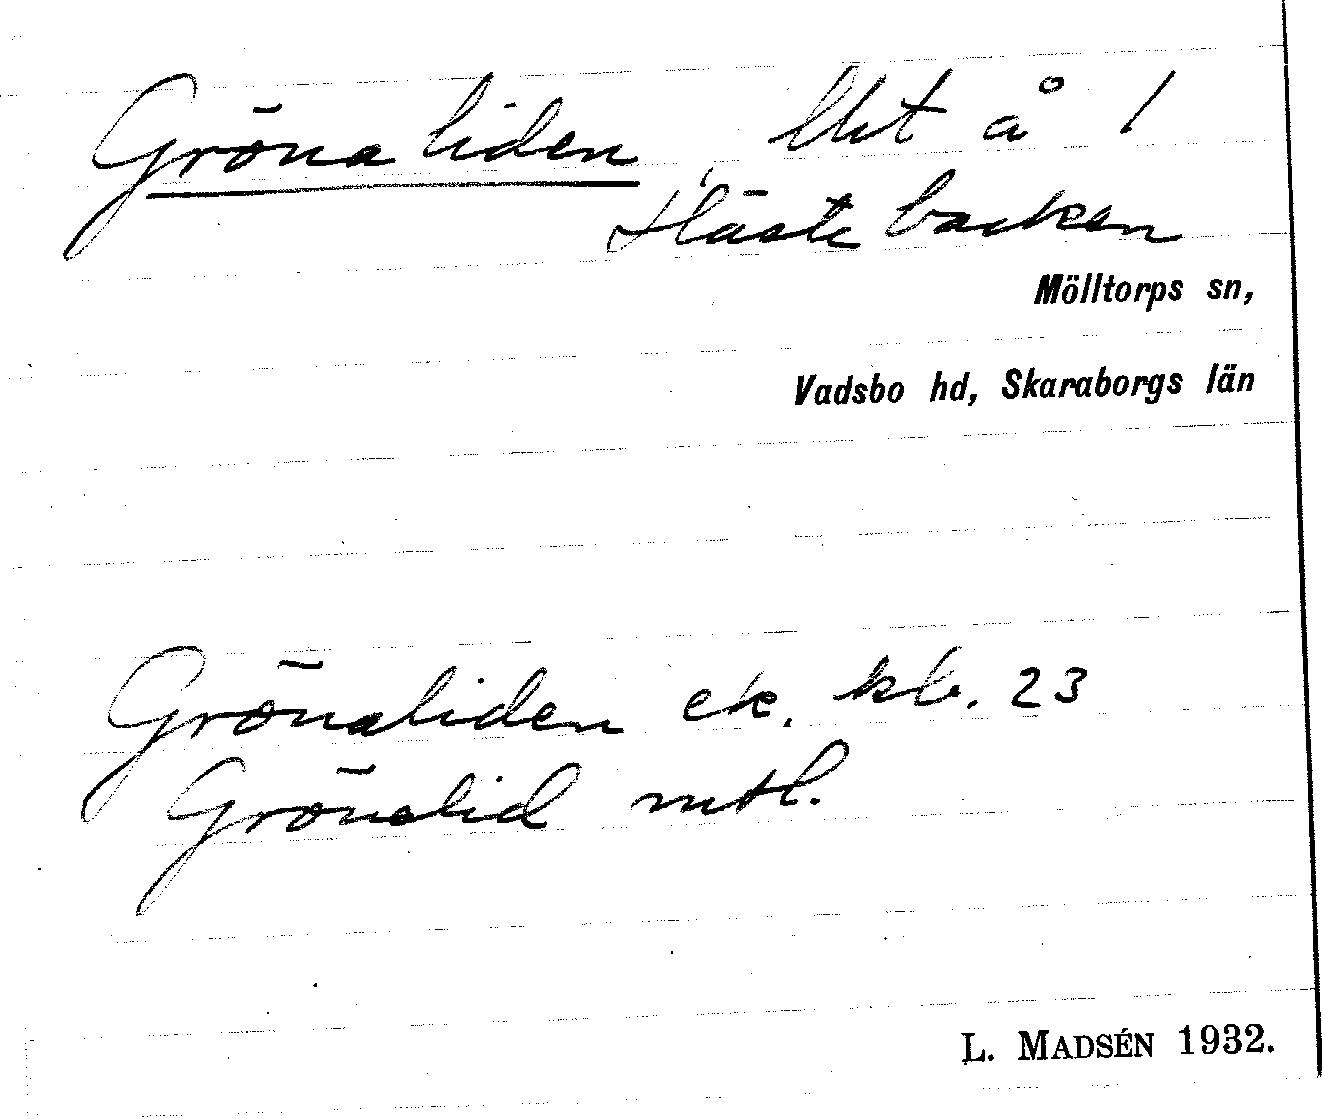 Gröna liden, lht å 1
Hästebacken
Mölltorps sn,
Vadsbo hd, Skaraborgs län
Grönaliden ek. kb. 23
Grönelid mtl.
L. MADSÉN 1932.